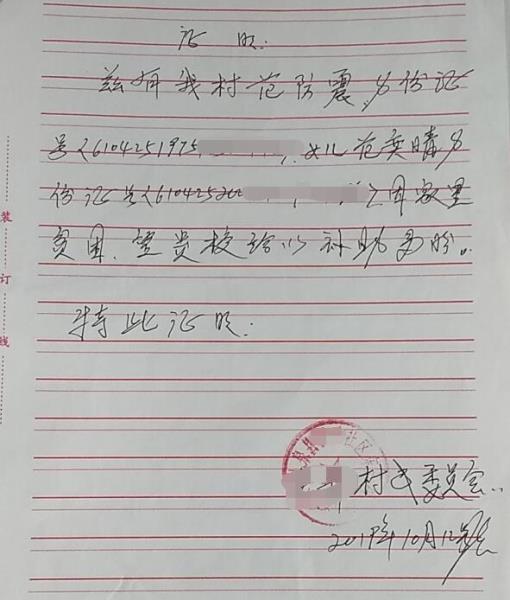 证明:
兹有我村范防震,身份证
号(6104251975 ),女儿范奕晴身
份证号(610425200 )因家里
贫困,望贵校给以补助为盼。
特此证明:
社区
村民委员会
2019年10月12号
装
订
线